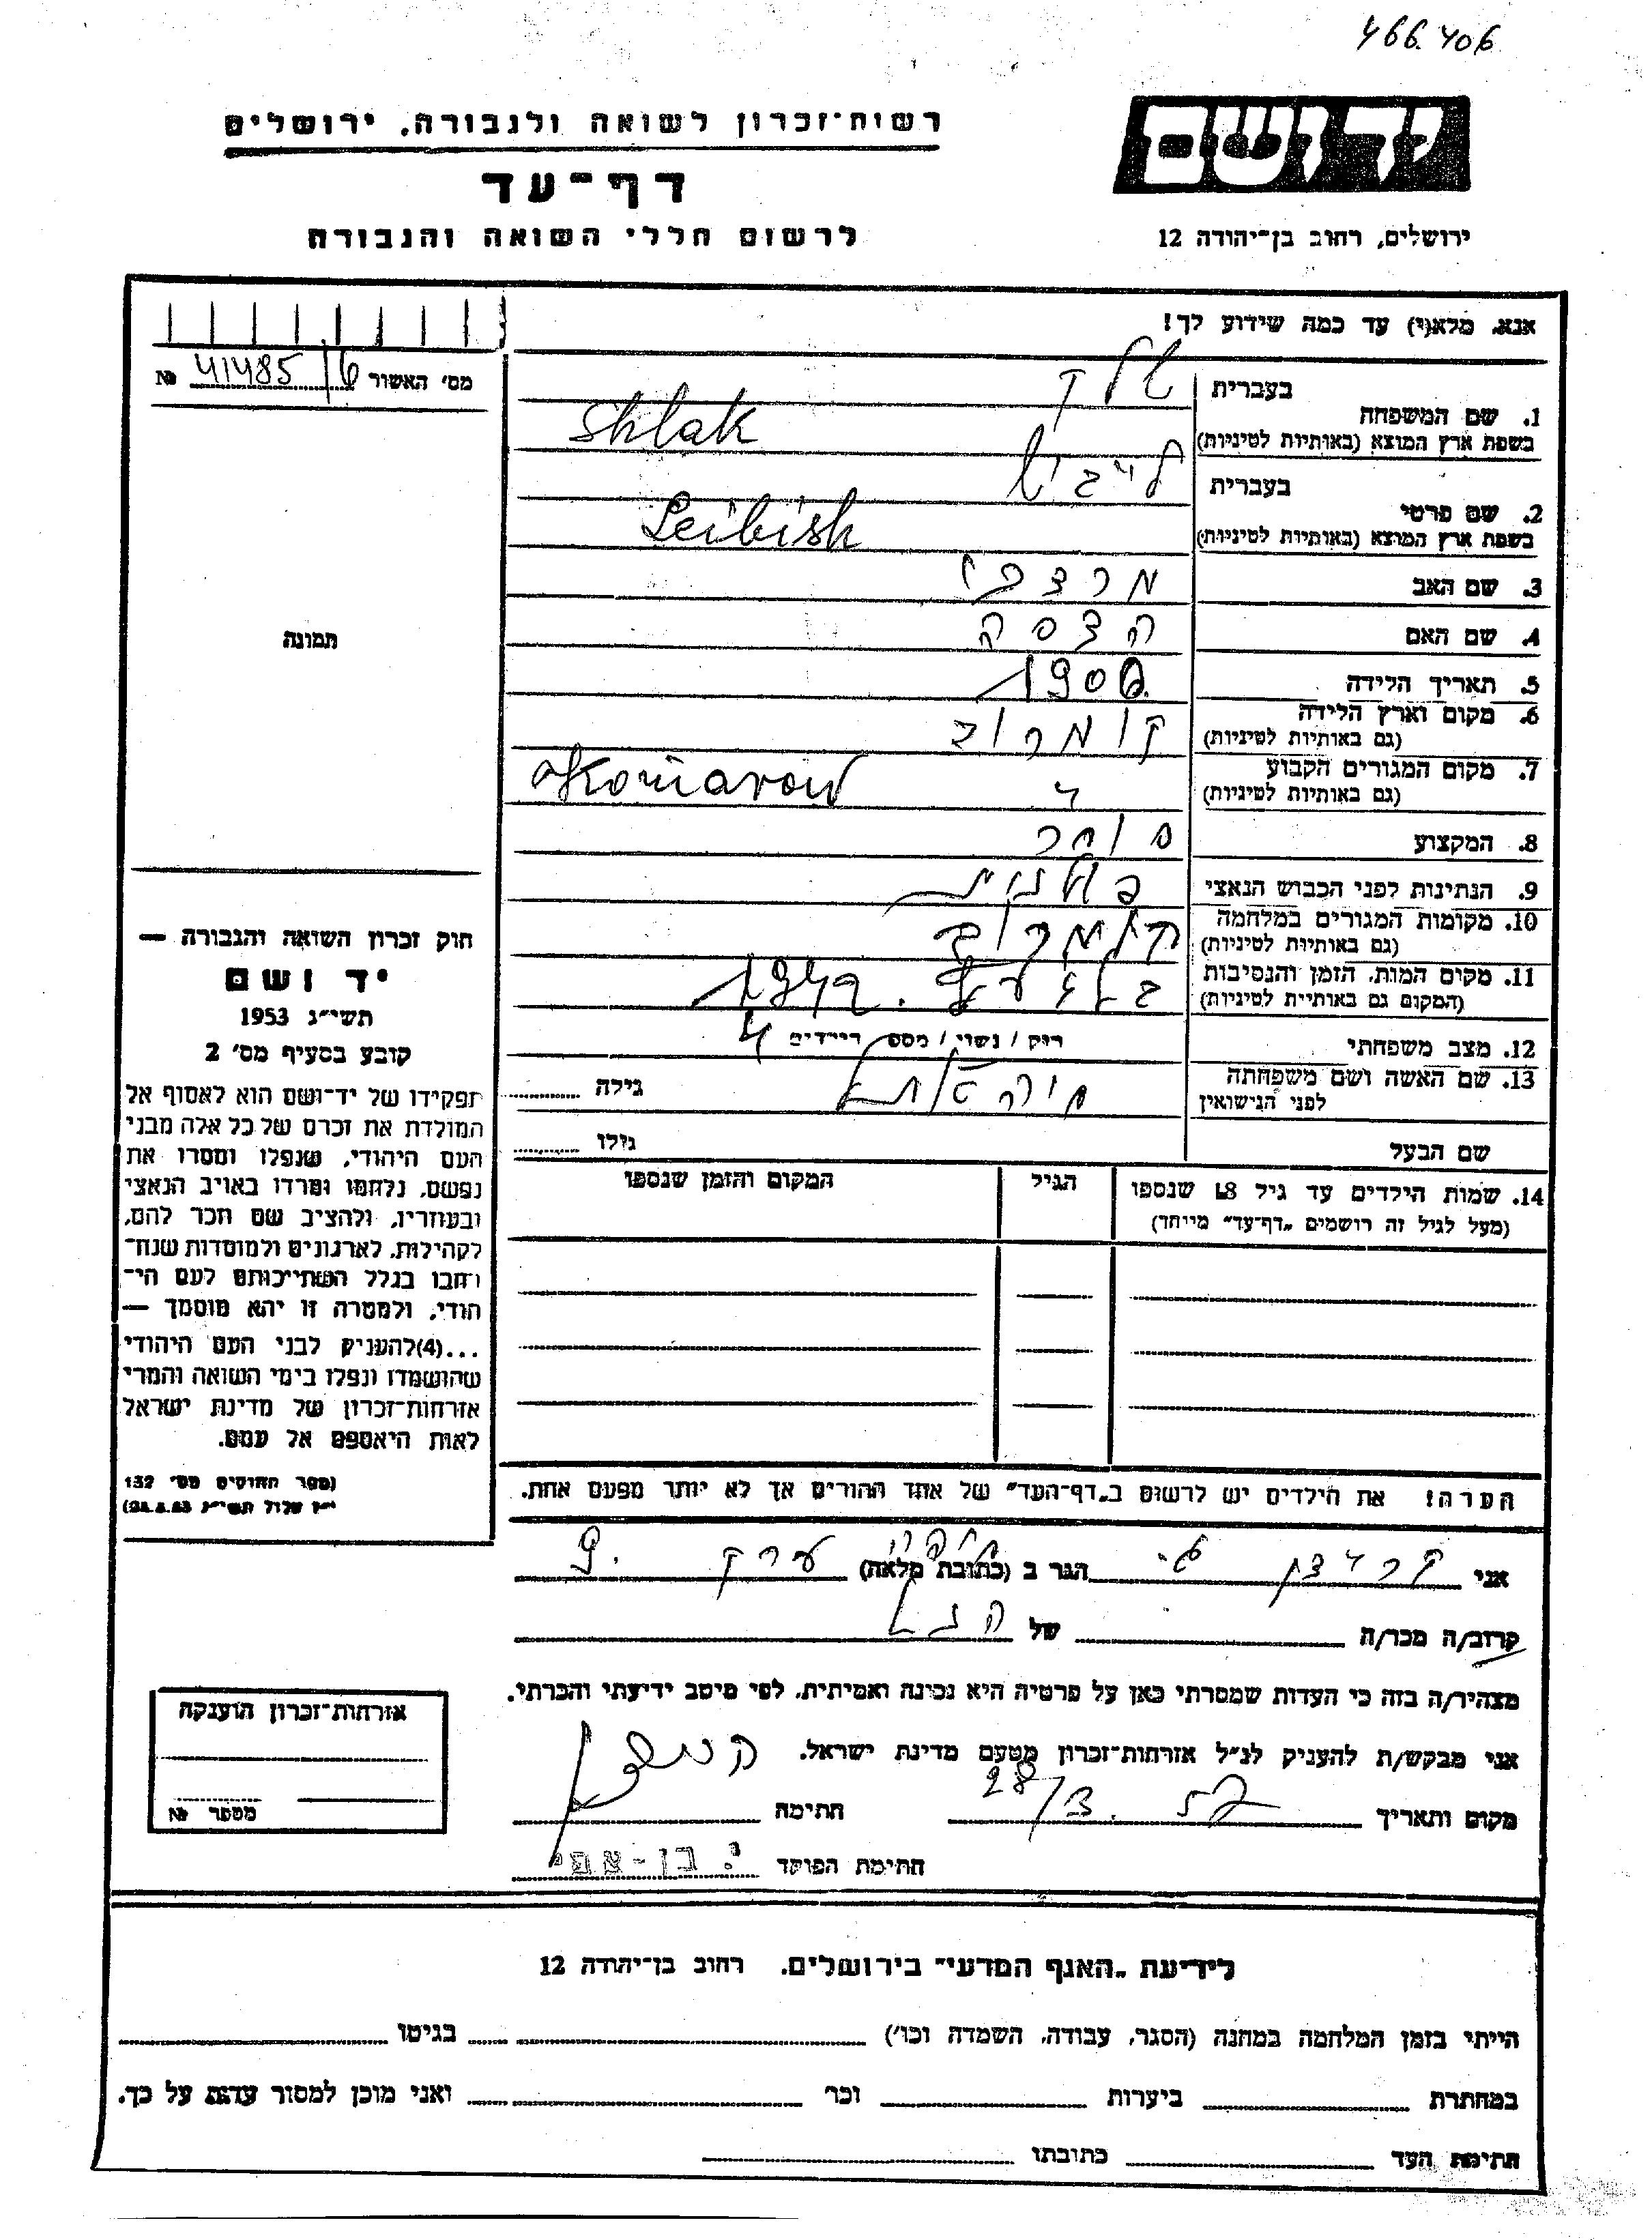 466.406
רשות־זכרון לשואה ולגבורה, ירושלים
דף־עד
לרשום חללי השואה והגבורה
יד ושם
ירושלים, רחוב בן־יהודה 12
אנא, מלא(י) עד כמה שידוע לך!
מס׳ האשור 41485/6 №
1. שם המשפחה
בעברית שלק
בשפת ארץ המוצא (באותיות לטיניות) Shlak
2. שם פרטי
בעברית לייביש
בשפת ארץ המוצא (באותיות לטיניות) Leibish
3. שם האב מרדכי
4. שם האם הדסה
5. תאריך הלידה 1906
6. מקום וארץ הלידה קומרוב
(גם באותיות לטיניות)
7. מקום המגורים הקבוע Komarow
(גם באותיות לטיניות)
8. המקצוע סוחר
9. הנתינות לפני הכבוש הנאצי פולנית
10. מקומות המגורים במלחמה קומרוב
(גם באותיות לטיניות)
11. מקום המות, הזמן והנסיבות 1942
(המקום גם באותיית לטיניות)
12. מצב משפחתי רוק / נשוי / מספר הילדים 4
13. שם האשה ושם משפחתה
לפני הנישואין
גילה
שם הבעל גילו
14. שמות הילדים עד גיל 18 שנספו הגיל המקום והזמן שנספו
(מעל לגיל זה רושמים „דף־עד” מייחד)
הערה! את הילדים יש לרשום ב„דף־העד” של אחד ההורים אך לא יותר מפעם אחת.
תמונה
חוק זכרון השואה והגבורה —
יד ושם
תשי״ג 1953
קובע בסעיף מס׳ 2
תפקידו של יד־ושם הוא לאסוף אל
המולדת את זכרם של כל אלה מבני
העם היהודי, שנפלו ומסרו את
נפשם, נלחמו ומרדו באויב הנאצי
ובעוזריו, ולהציב שם וזכר להם,
לקהילות, לארגונים ולמוסדות שנח־
רבו בגלל השתייכותם לעם הי־
הודי, ולמטרה זו יהא מוסמך —
...(4)להעניק לבני העם היהודי
שהושמדו ונפלו בימי השואה והמרי
אזרחות־זכרון של מדינת ישראל
לאות היאספם אל עמם.
(ספר החוקים מס׳ 132
י״ז אלול תשי״ג 28.8.53)
אני הגר ב (כתובת מלאה) חיפה 9
קרוב/ה מכר/ה של הנ״ל
מצהיר/ה בזה כי העדות שמסרתי כאן על פרטיה היא נכונה ואמיתית, לפי מיטב ידיעתי והכרתי.
אני מבקש/ת להעניק לנ״ל אזרחות־זכרון מטעם מדינת ישראל.
מקום ותאריך 28/3 חתימה
חתימת הפוקד י. בן-אמי
אזרחות־זכרון הוענקה
מספר №
לידיעת „האגף המדעי” בירושלים, רחוב בן־יהודה 12
הייתי בזמן המלחמה במחנה (הסגר, עבודה, השמדה וכו׳) בגיטו
במחתרת ביערות וכו׳ ואני מוכן למסור עדות על כך.
חתימת העד כתובתו